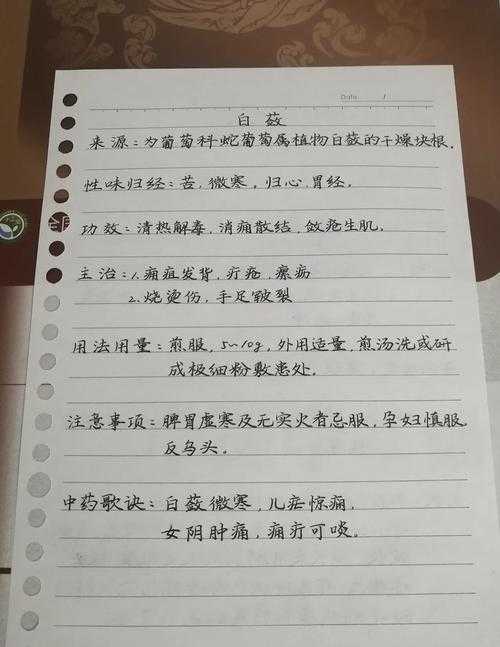 Date /
白蔹
来源：为葡萄科蛇葡萄属植物白蔹的干燥块根。
性味归经：苦，微寒，归心，胃经。
功效：清热解毒，消痈散结，敛疮生肌。
主治：1.痈疽发背，疔疮，瘰疬
2.烧烫伤，手足皲裂
用法用量：煎服，5~10g，外用适量，煎汤洗或研
成极细粉敷患处。
注意事项：脾胃虚寒及无实火者忌服，孕妇慎服。
反乌头。
中药歌诀：白蔹微寒，儿疟惊痫，
女阴肿痛，痈疔可啖。